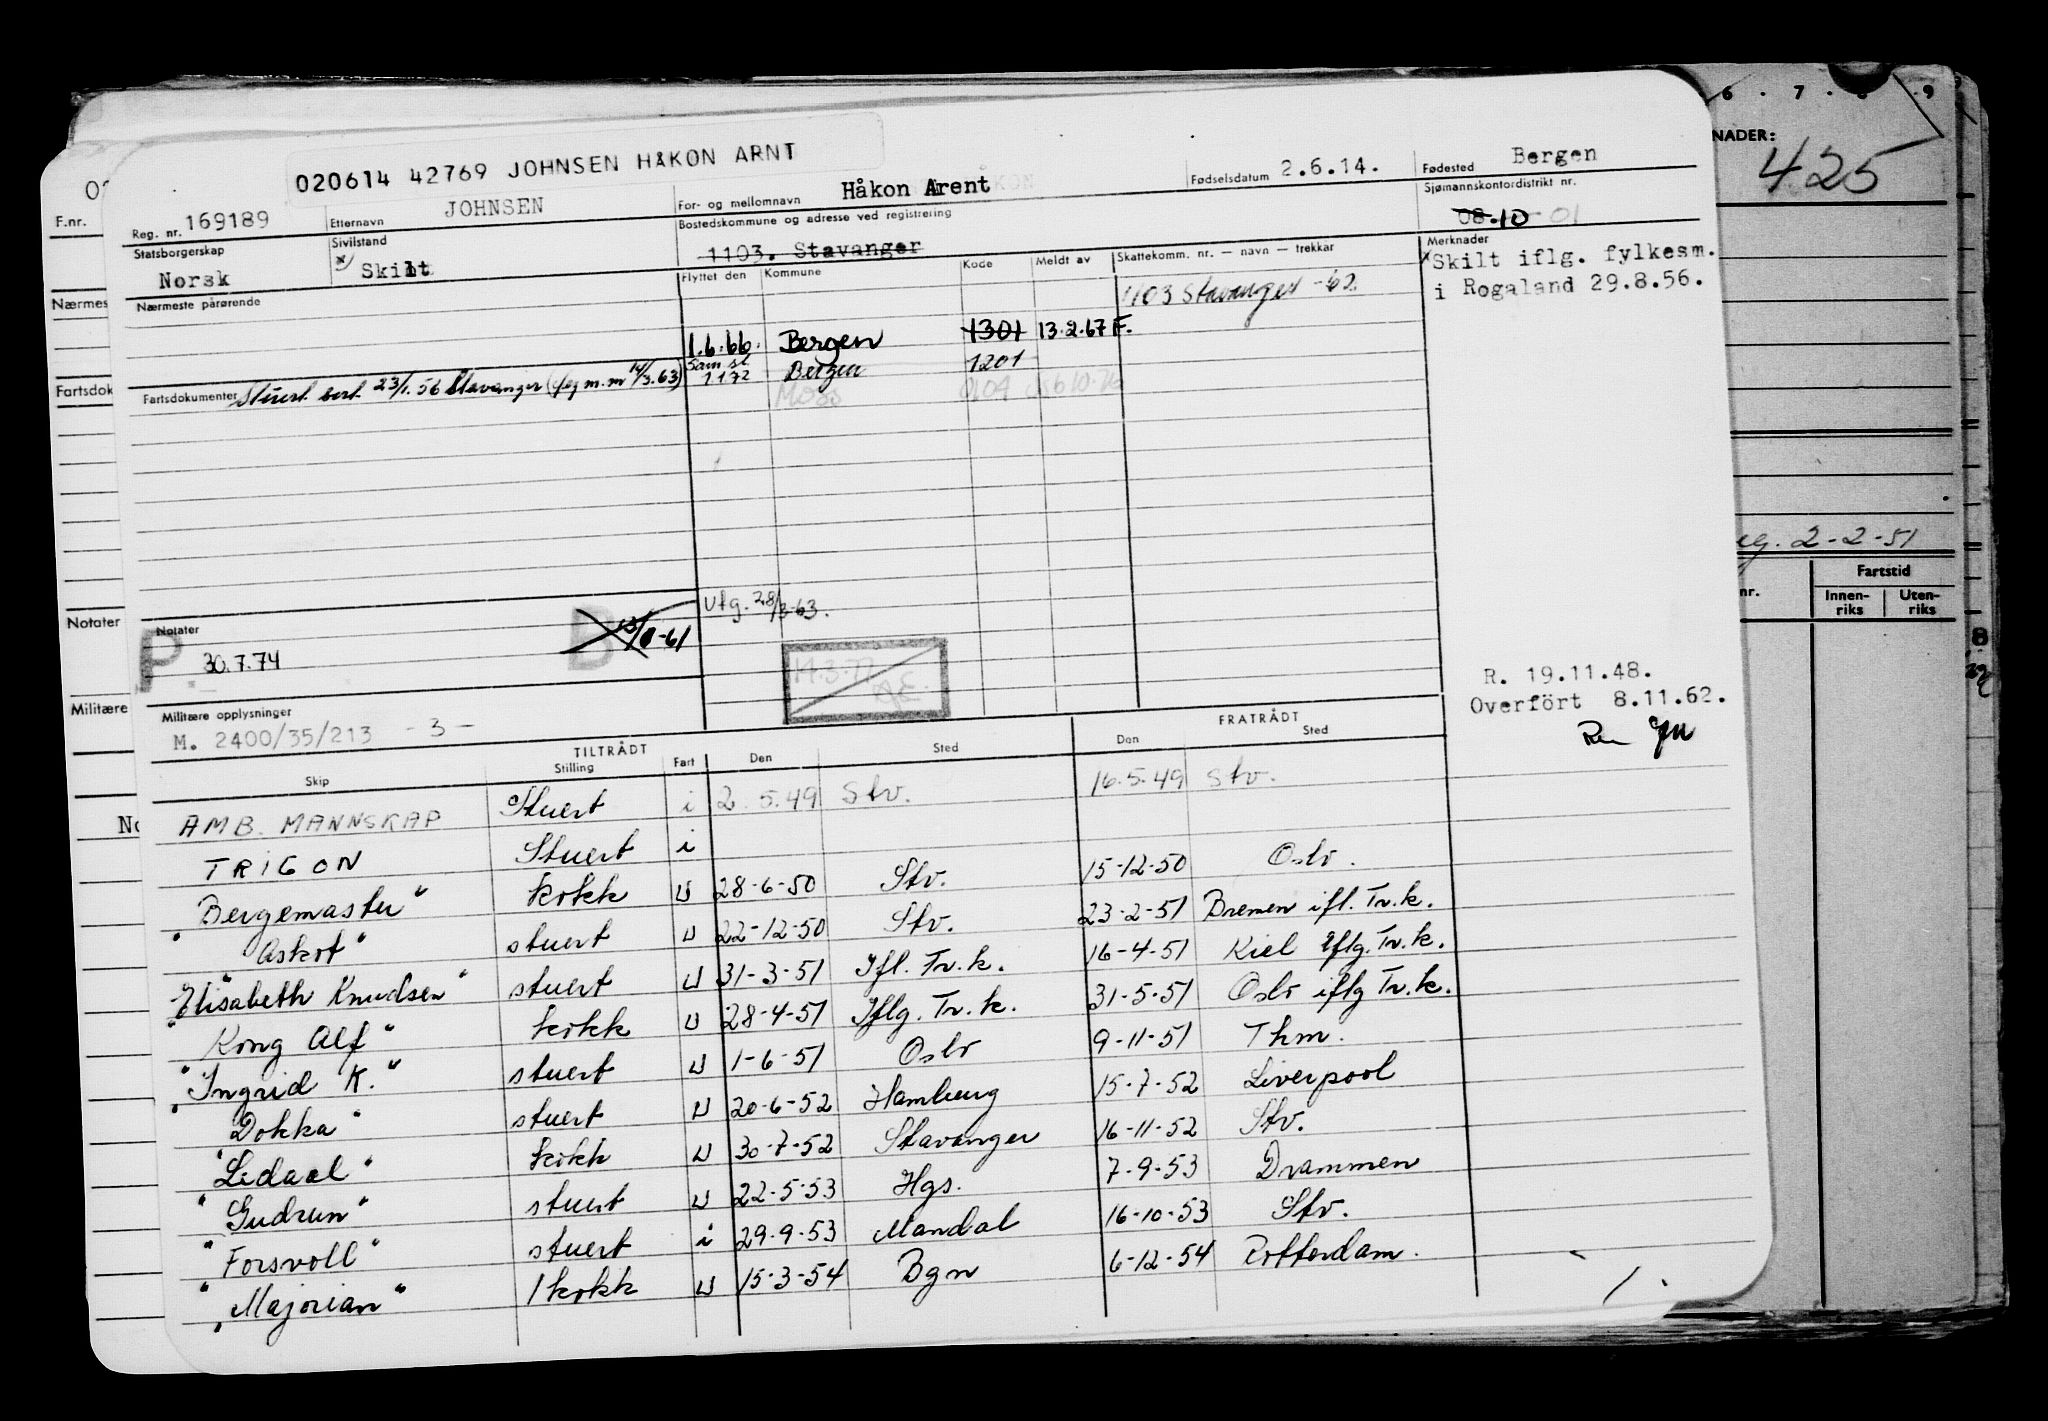 020614 42769 JOHNSEN HÅKON ARNT
Reg. nr. 169189
Etternavn JOHNSEN
For- og mellomnavn Håkon Arent
Fødselsdatum 2.6.14.
Fødested Bergen
Statsborgerskap Norsk
Sivilstand Skilt
Bostedskommune og adresse ved registrering
1103. Stavanger
Sjømannskontordistrikt nr.
08 10 01
Nærmeste pårørende
Flyttet den Kommune Kode Meldt av Skattekomm. nr. – navn – trekkår
Merknader
Skilt iflg. fylkesm.
i Rogaland 29.8.56.
1103 Stavanger -62.
1.6.66. Bergen 1301 13.2.67 F.
1172 Bergen 1201
Moss 0104
Fartsdokumenter Stuert sert. 23/1.56 Stavanger
Utg. 28/3-63.
Notater
P 30.7.74
B
14.3.77
Militære opplysninger
M. 2400/35/213 - 3 -
R. 19.11.48.
Overfört 8.11.62.
TILTRÅDT FRATRÅDT
Skip Stilling Fart Den Sted Den Sted
AMB. MANNSKAP Stuert i 2.5.49 Stv. 16.5.49 Stv.
TRIGON Stuert i
"Bergemaster" kokk U 28-6-50 Stv. 15-12-50 Oslo.
"Askot" stuert U 22-12-50 Stv. 23-2-51 Bremen ifl. Tr.k.
"Elisabeth Knudsen" stuert U 31-3-51 Ifl. Tr.k. 16-4-51 Kiel iflg. Tr.k.
"Kong Alf" kokk U 28-4-51 Iflg. Tr.k. 31-5-51 Oslo iflg Tr.k.
"Ingrid K." stuert U 1-6-51 Oslo 9-11-51 Thm.
"Dokka" stuert U 20-6-52 Hamburg 15-7-52 Liverpool
"Ledaal" kokk U 30-7-52 Stavanger 16-11-52 Stv.
"Gudrun" stuert U 22-5-53 Hgs. 7-9-53 Drammen
"Forsvoll" stuert i 29.9.53 Mandal 16-10-53 Stv.
"Majorian" 1 kokk U 15-3-54 Bgn 6-12-54 Rotterdam.
F.nr.
Nærmes
Fartsdok
Notater
Militære
No
6 . 7 . 8 . 9
NADER:
425
eg. 2-2-51
nr.
Fartstid
Innen-riks Uten-riks